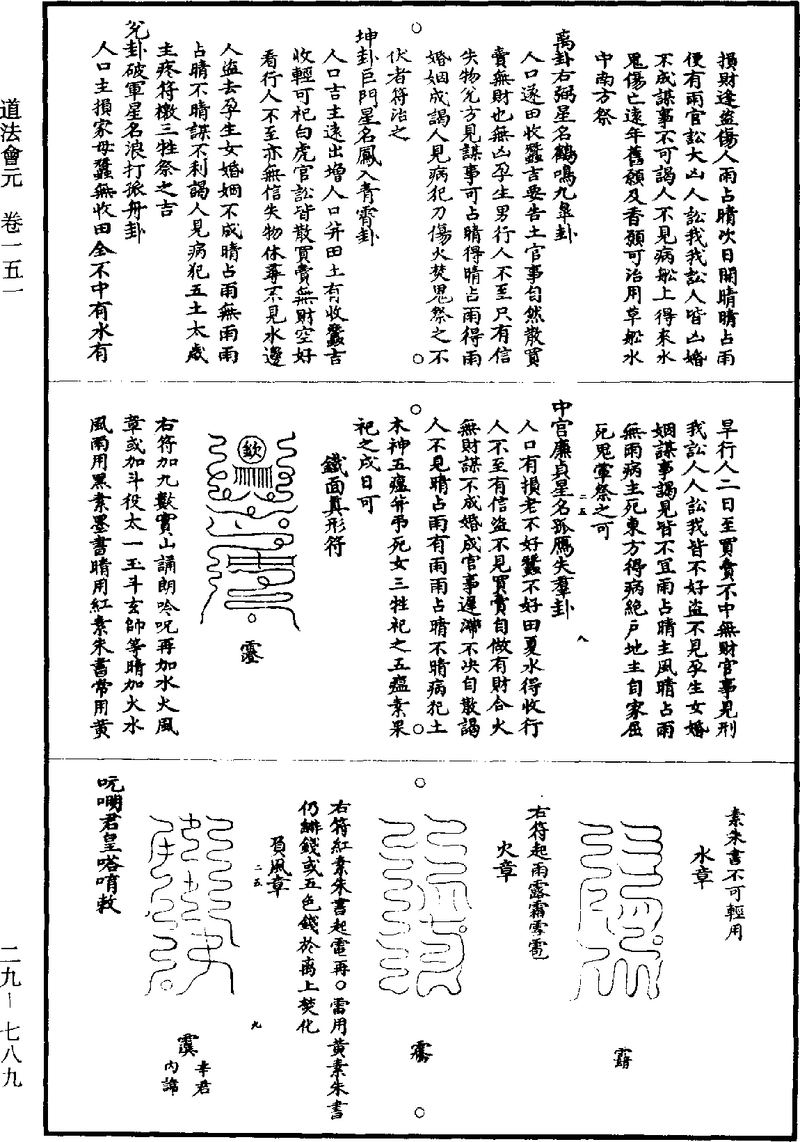 道法會元 卷一五一
損財逢盜傷人雨占晴次日開晴晴占雨
便有雨官訟大凶人訟我我訟人皆凶婚
不成謀事不可謁人不見病船上得來水
鬼傷亡遠年舊願及香願可治用草船水
中南方祭
離卦右弼星名鶴鳴九皋卦
人口遂田收蠶吉要告土官事自然散買
賣無財也無凶孕生男行人不至只有信
失物兌方見謀事可占晴得晴占雨得雨
婚姻成謁人見病犯刀傷火焚鬼祭之不
伏者符治之
坤卦巨門星名鳳入青霄卦
人口吉主遠出增人口并田土有收蠶吉
收輕可祀白虎官訟皆散買賣無財空好
看行人不至亦無信失物休尋不見水邊
人盜去孕生女婚姻不成晴占雨無雨雨
占晴不晴謀不利謁人見病犯五土太歲
主疼符檄三牲祭之吉
兌卦破軍星名浪打孤舟卦
人口主損家母蠶無收田全不中有水有
旱行人二日至買賣不中無財官事見刑
我訟人人訟我皆不好盜不見孕生女婚
姻謀事謁見皆不宜雨占晴主風晴占雨
無雨病主死東方得病絕戶地主自家屈
死鬼軍祭之可
二五
八
中宮廉貞星名孤鴈失羣卦
人口有損老不好蠶不好田夏水得收行
人不至有信盜不見買賣自做有財合火
無財謀不成婚成官事遲滯不決自散謁
人不見晴占雨有雨雨占晴不晴病犯土
木神五瘟并弔死女三牲祀之五瘟素果
祀之戌日可
鐵面真形符
欻
右符加九數實山誦朗吟呪再加水火風
章或加斗役太一玉斗玄帥等晴加火水
風雨用黑素墨書晴用紅素朱書常用黃
素朱書不可輕用
水章
右符起雨露霜雪雹
火章
右符紅素朱書起電再○雷用黃素朱書
仍緋錢或五色錢於离上焚化
二五
九
巽風章
辛君
內諱
君皇㗳唷敕
二九—七八九